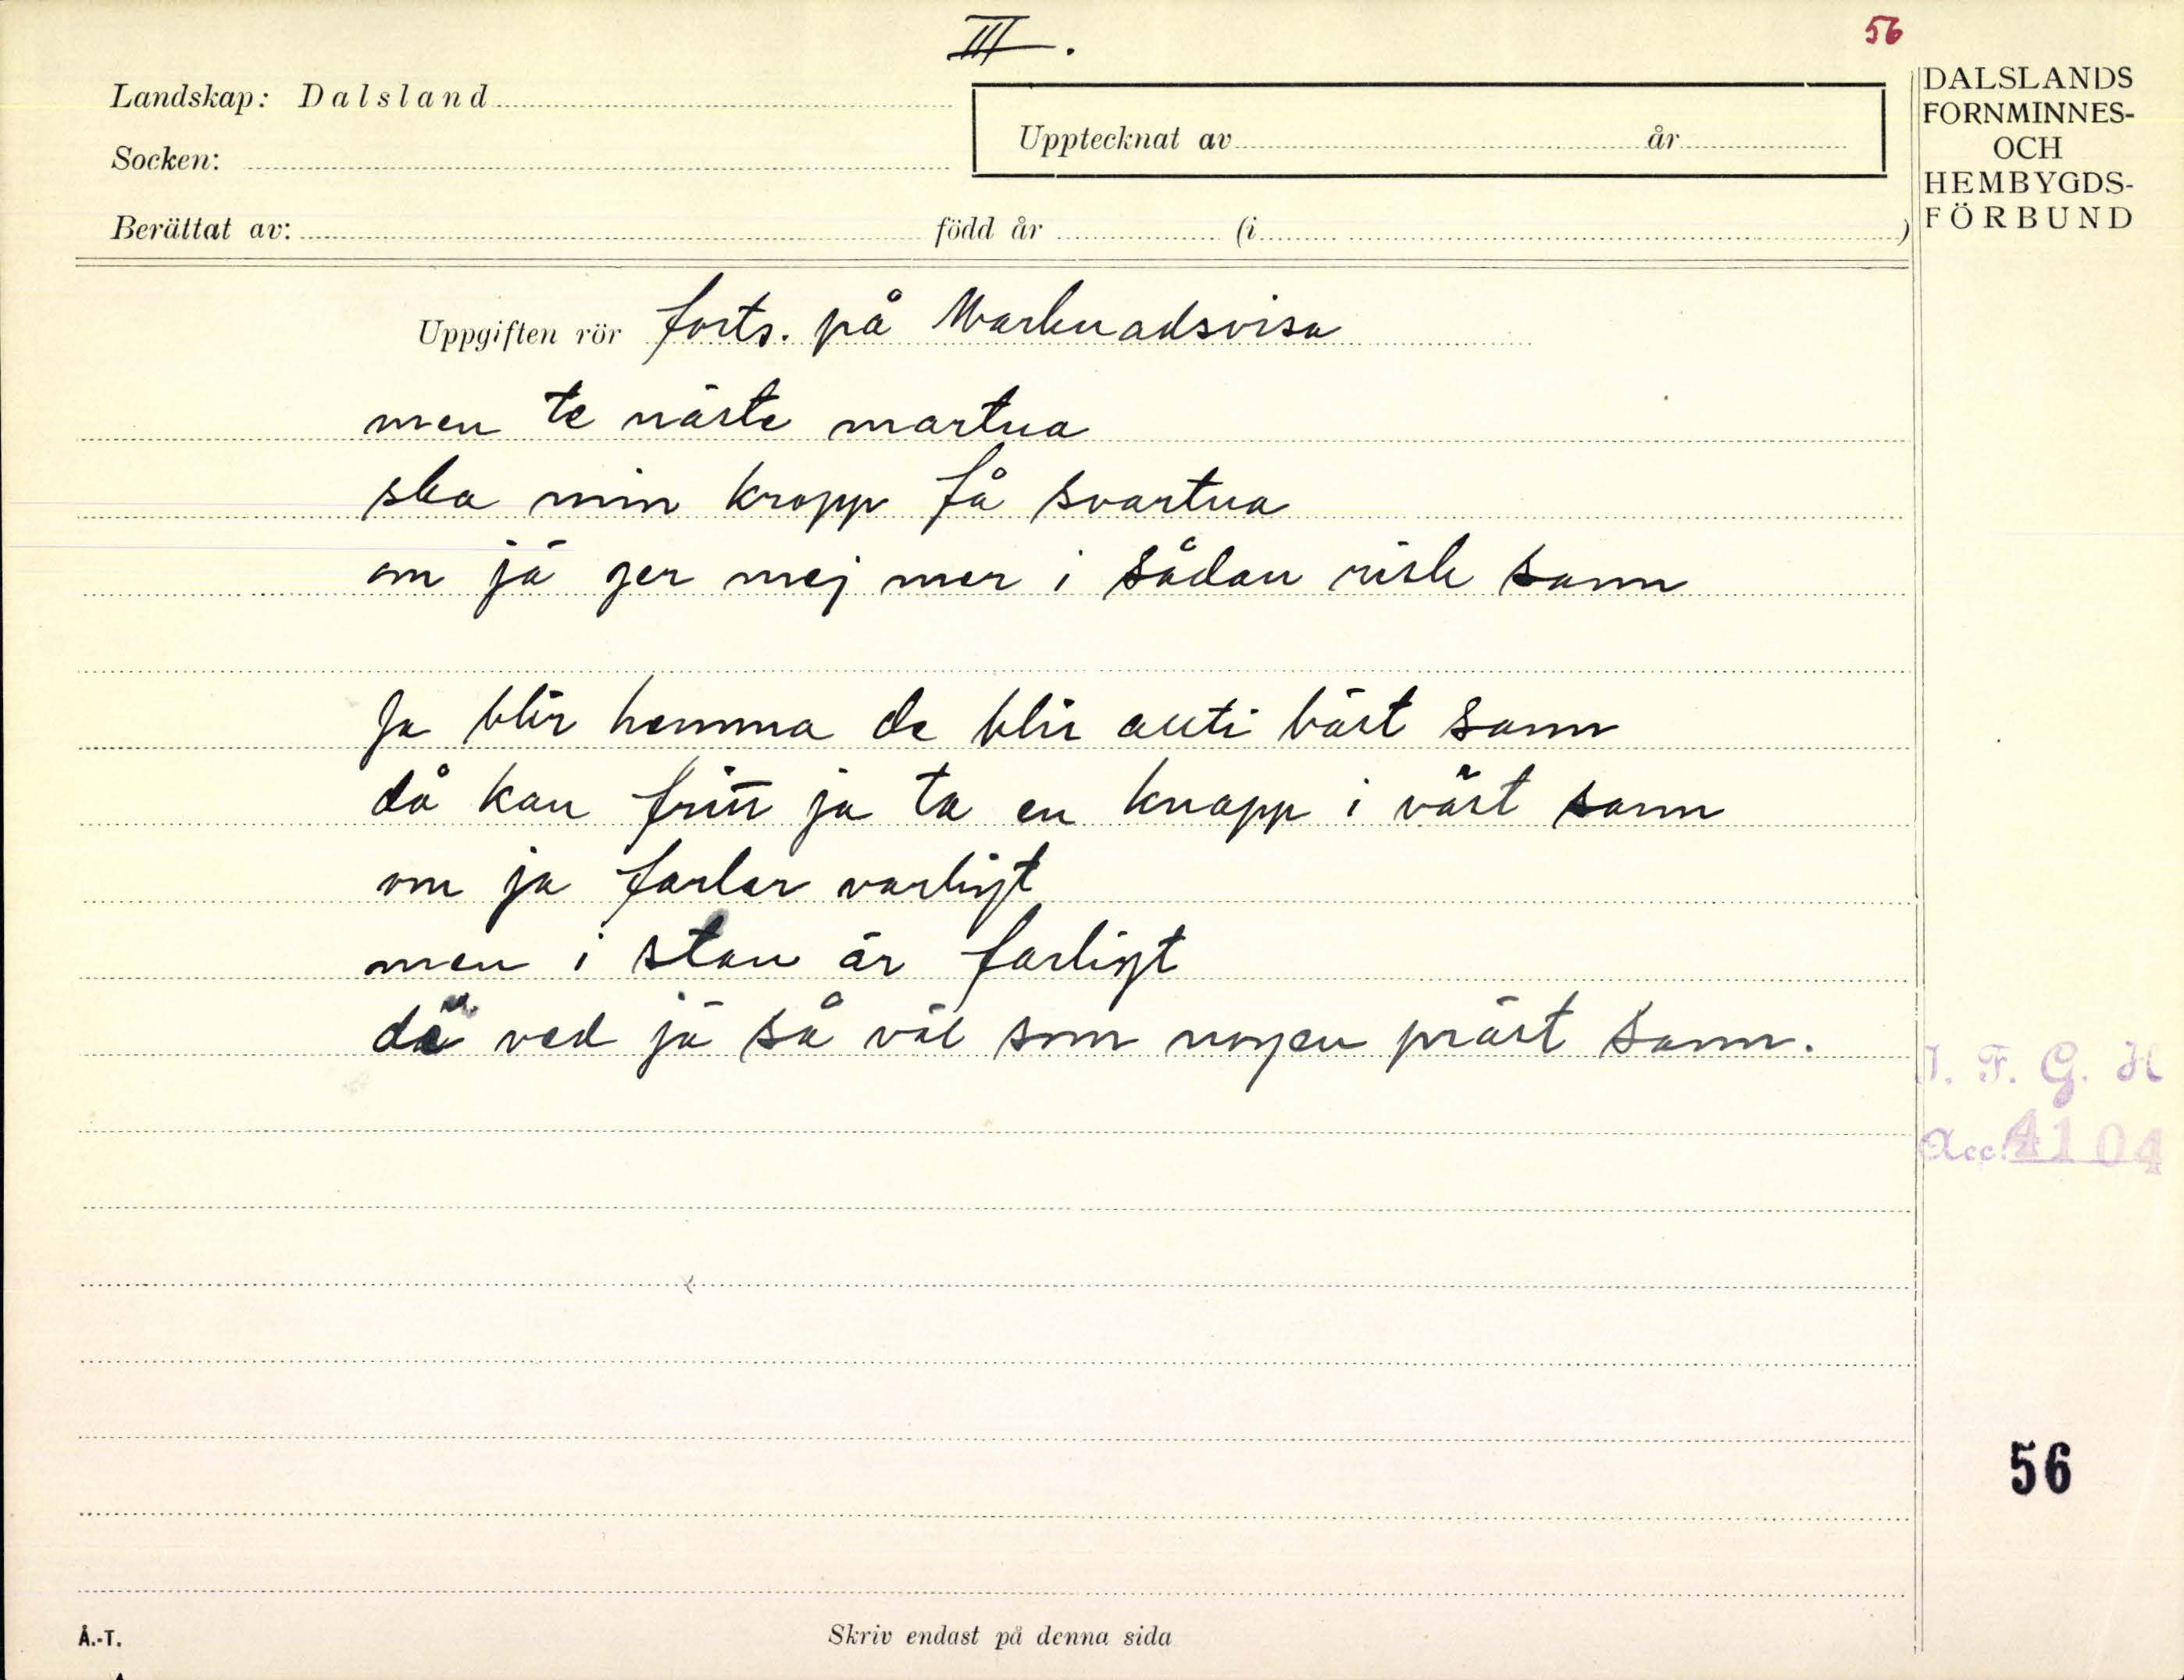 III.
56
Landskap: Dalsland
Socken:
Upptecknat av år
Berättat av: född år (i )
DALSLANDS
FORNMINNES-
OCH
HEMBYGDS-
FÖRBUND
Uppgiften rör forts. på Marknadsvisa
men te näste martna
ska min kropp få svartna
om jä ger mej mer i sådan risk sann
Ja blir hemma de blir bäst sann
då kan ja ta en knapp i väst sann
om ja farlar varligt
men i stan är farligt
dä ved jä så väl som nogen präst sann.
I. F. G. H
Acc. 4104
56
Å.-T.
Skriv endast på denna sida